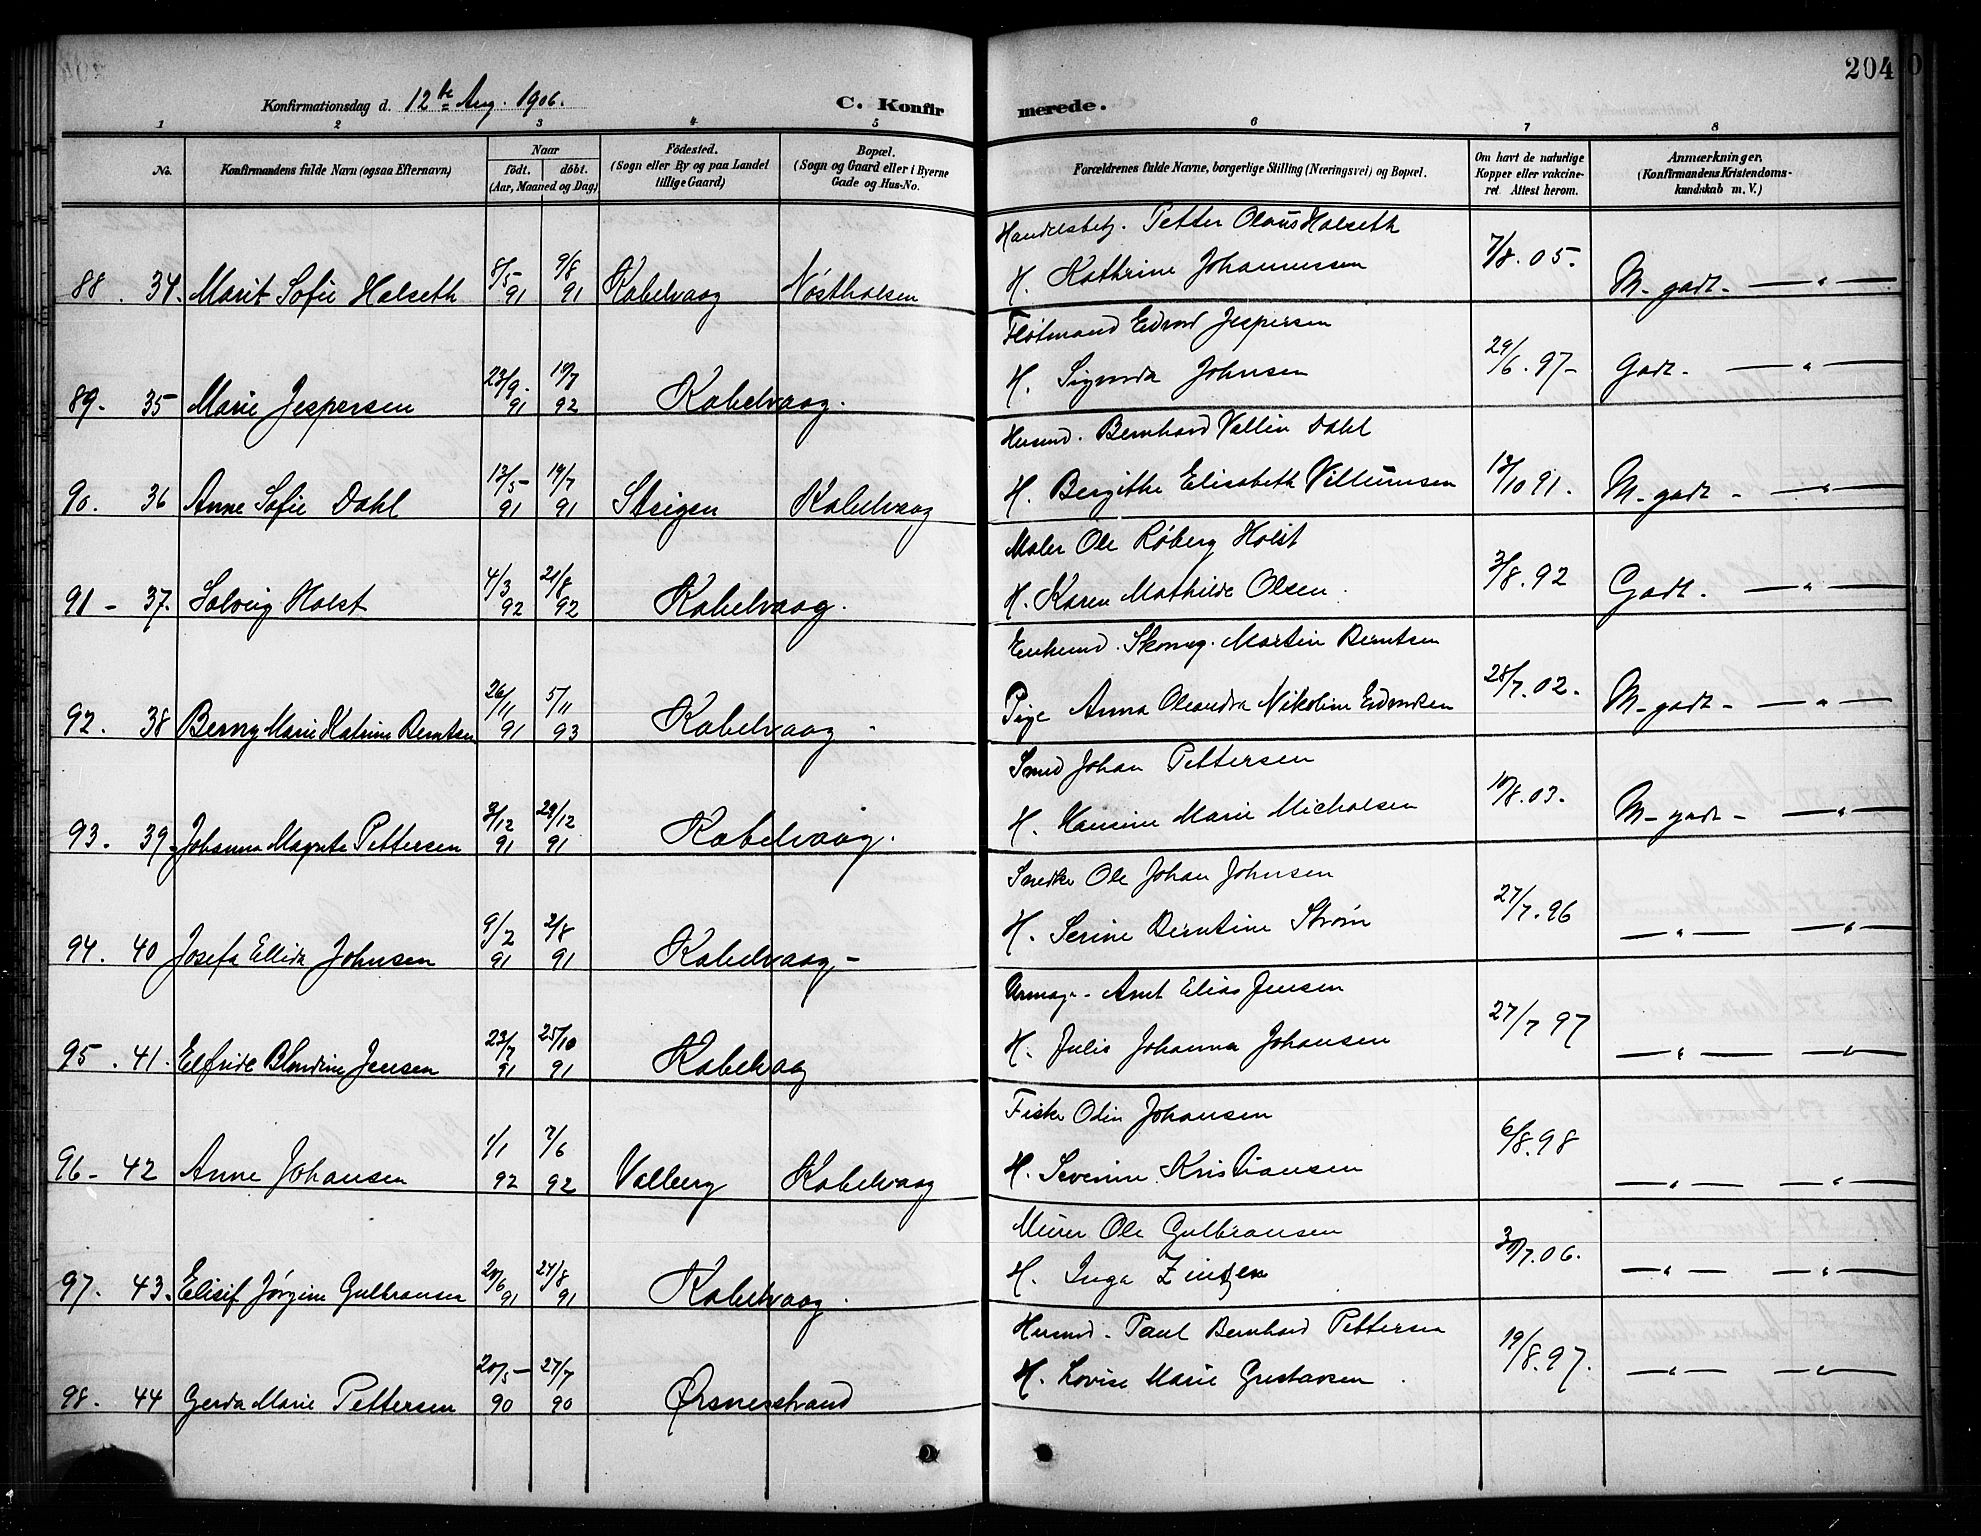 204
Konfirmationsdag d. 12te Aug. 1906.
C. Konfirmerede.
1 2 3 4 5 6 7 8
No.
Konfirmandens fulde Navn (ogsaa Efternavn)
Naar
födt. döbt.
(Aar, Maaned og Dag)
Födested.
(Sogn eller By og paa Landet
tillige Gaard)
Bopæl.
(Sogn og Gaard eller i Byerne
Gade og Hus-No.
Forældrenes fulde Navne, borgerlige Stilling (Næringsvei) og Bopæl.
Om havt de naturlige
Kopper eller vakcine-
ret Attest herom.
Anmærkninger.
(Konfirmandens Kristendoms-
kundskab m. V.)
Handelsbetj. Petter Olaus Holseth
88. 34. Marit Sofie Holseth 8/5 91 9/8 91 Kabelvaag Nøstholmen H. Kathrine Johannessen 7/8. 05. M-godt - — „ —
Fløtmand Edvard Jespersen
89. 35 Marie Jespersen 23/9. 91 10/7 92 Kabelvaag. H. Sigvarda Johnsen 29/6. 97- Godt. - — „ —
Husmd. Bernhard Vallin Dahl
90. 36 Anne Sofie Dahl 13/5- 91 19/7 91 Steigen Kabelvaag H. Bergithe Elisabeth Villumsen 12/10 91. M-godt - — „ —
Maler Ole Røberg Holst
91 - 37. Solveig Holst 4/3 92 21/8 92 Kabelvaag. H. Karen Mathilde Olsen. 3/8. 92 Godt. — „ —
Enkemd. Skomag. Martin Berntsen
92. 38 Berny Marie Katrine Berntsen 26/11 91 5/11 93 Kabelvaag - Pige Anna Oleandra Nikoline Edvardsen 28/7. 02. M-godt - — „ —
Smed Johan Pettersen
93. 39. Johanna Magnete Pettersen 3/12 91 29/12 91 Kabelvaag. H. Hansine Marie Michalsen 10/8. 03. M-godt - — „ —
Snedke Ole Johan Johnsen
94. 40 Josefa Ellida Johnsen 9/2 91 2/8 91 Kabelvaag - H. Serine Berntine Strøm 27/7. 96 — „ — — „ —
Urmag. - Arnt Elias Jensen
95. 41. Elfride Blondine Jensen 23/7 91 25/10 91 Kabelvaag H. Julis Johanna Johansen 27/7 97 — „ — — „ —
Fiske Odin Johansen
96 - 42 Anne Johansen 1/1 92 7/6 92 Valberg Kabelvaag H. Severine Kristiansen 6/8. 98 — „ — — „ —
Murer Ole Gulbransen
97. 43. Elisif Jørgine Gulbransen 29/6 91 24/8 91 Kabelvaag. H. Inga 30/7. 06. — „ — — „ —
Husmd. Paul Bernhard Pettersen
98. 44 Gerda Marie Pettersen 20/5- 90 27/7 90 Ørsnesstrand H. Lovise Marie Gustavsen. 19/8. 97. — „ — — „ —